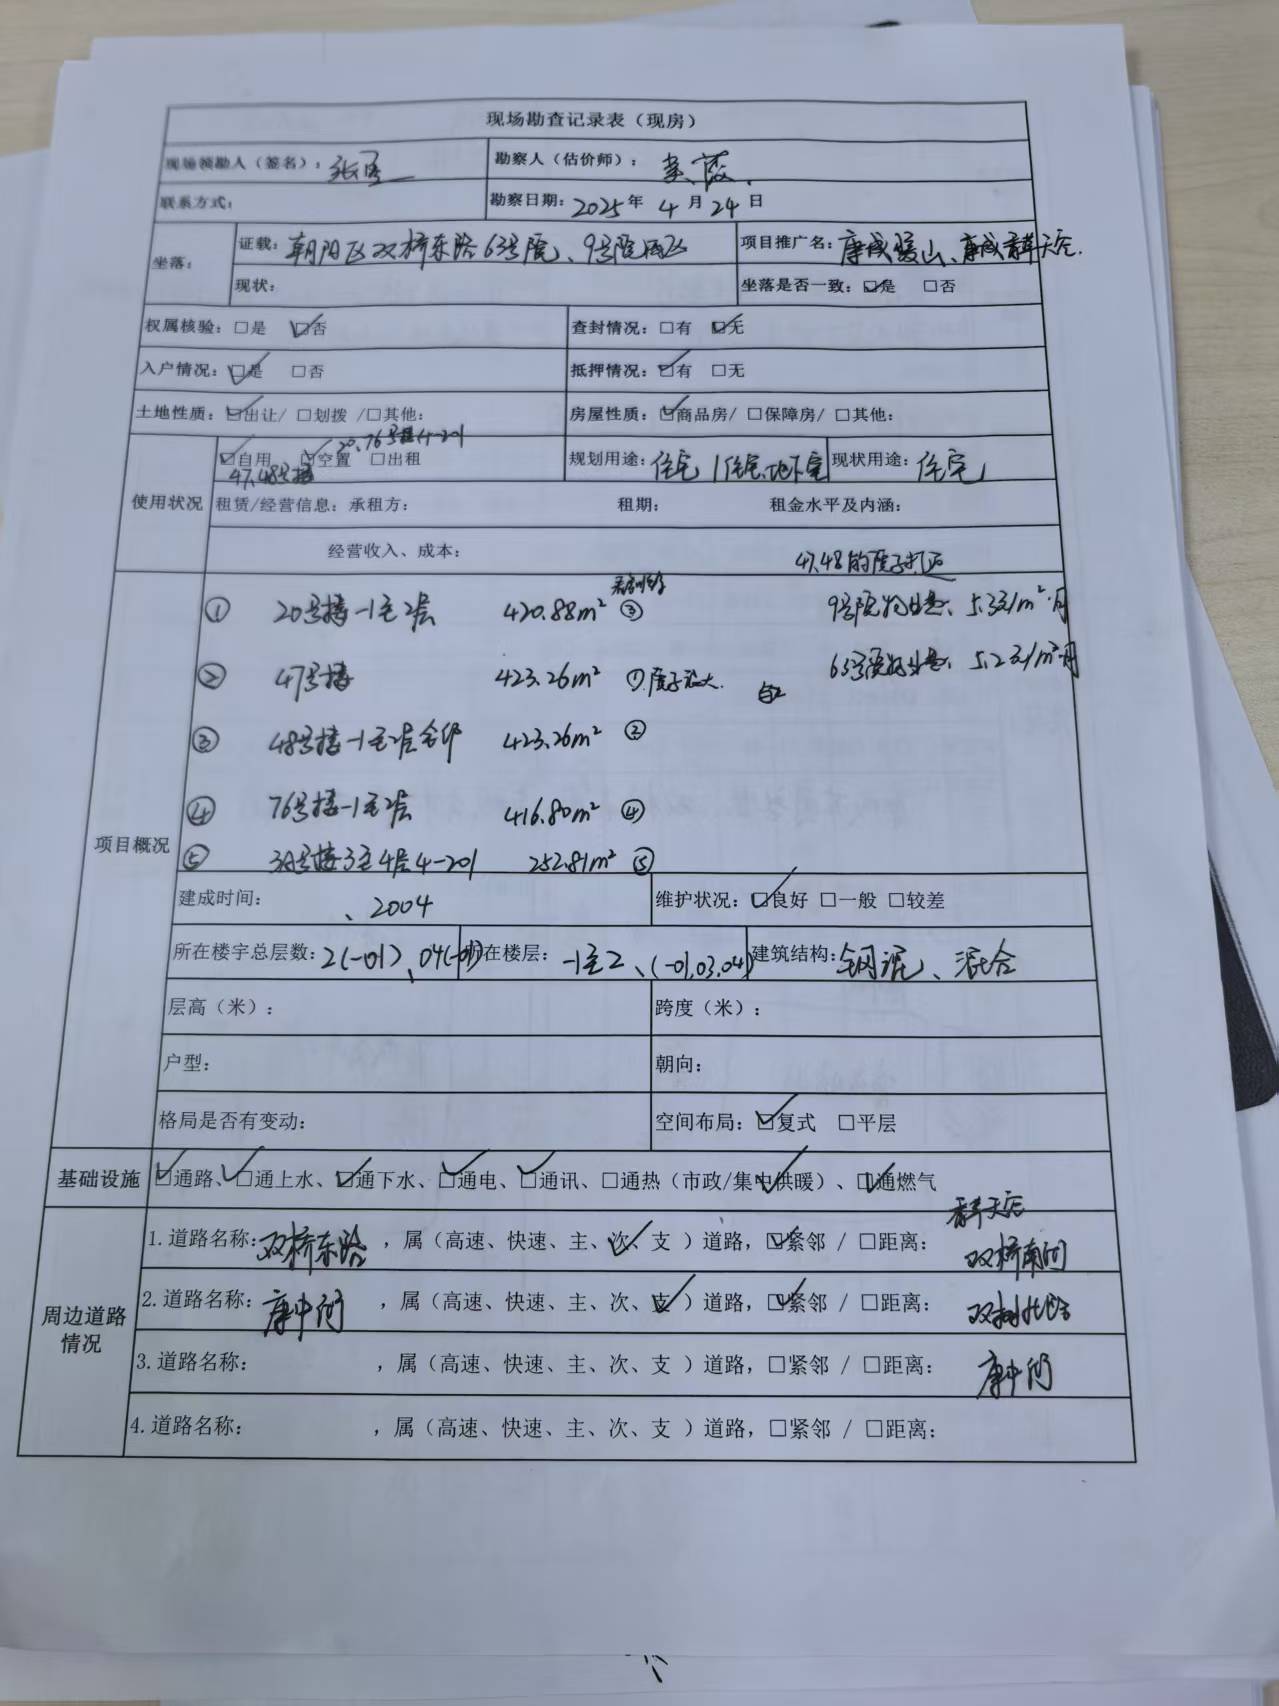 现场勘查记录表（现房）
现场领勘人（签名）：张 勘察人（估价师）：李
联系方式： 勘察日期：2025年 4 月 24 日
坐落： 证载：朝阳区双桥东路63号院、9号院 项目推广名：康城暖山、康城
现状： 坐落是否一致：☑是 □否
权属核验：□是 ☑否 查封情况：□有 ☑无
入户情况：☑是 □否 抵押情况：☑有 □无
土地性质：☑出让/ □划拨 /□其他： 房屋性质：☑商品房/ □保障房/ □其他：
20、76号楼4-201
使用状况 ☑自用 ☑空置 □出租 规划用途：住宅/住宅、地下室 现状用途：住宅
47、48号楼
租赁/经营信息：承租方： 租期： 租金水平及内涵：
经营收入、成本：
47、48的院子打通
项目概况
① 20号楼-1至2层 420.88m² ③ 9号院物业费、5.3元/m²·月
② 47号楼 423.26m² ①院子较大. 63号院物业费、5.2元/m²·月
③ 48号楼-1至2层全部 423.26m² ②
④ 76号楼-1至2层 416.80m² ④
⑤ 38号楼3至4层4-201 252.81m² ⑤
建成时间： 、2004 维护状况：☑良好 □一般 □较差
所在楼宇总层数：2(-01)、04(-01) 所在楼层：-1至2、(-01,03,04) 建筑结构：钢混、混合
层高（米）： 跨度（米）：
户型： 朝向：
格局是否有变动： 空间布局：☑复式 □平层
基础设施 ☑通路、☑通上水、☑通下水、☑通电、☑通讯、□通热（市政/集中供暖）、☑通燃气
周边道路情况
1.道路名称：双桥东路 ，属（高速、快速、主、次、支 ）道路，☑紧邻 / □距离： 双桥南街
2.道路名称：康中街 ，属（高速、快速、主、次、支 ）道路，☑紧邻 / □距离： 双桥北路
3.道路名称： ，属（高速、快速、主、次、支 ）道路，□紧邻 / □距离： 康中街
4.道路名称： ，属（高速、快速、主、次、支 ）道路，□紧邻 / □距离：